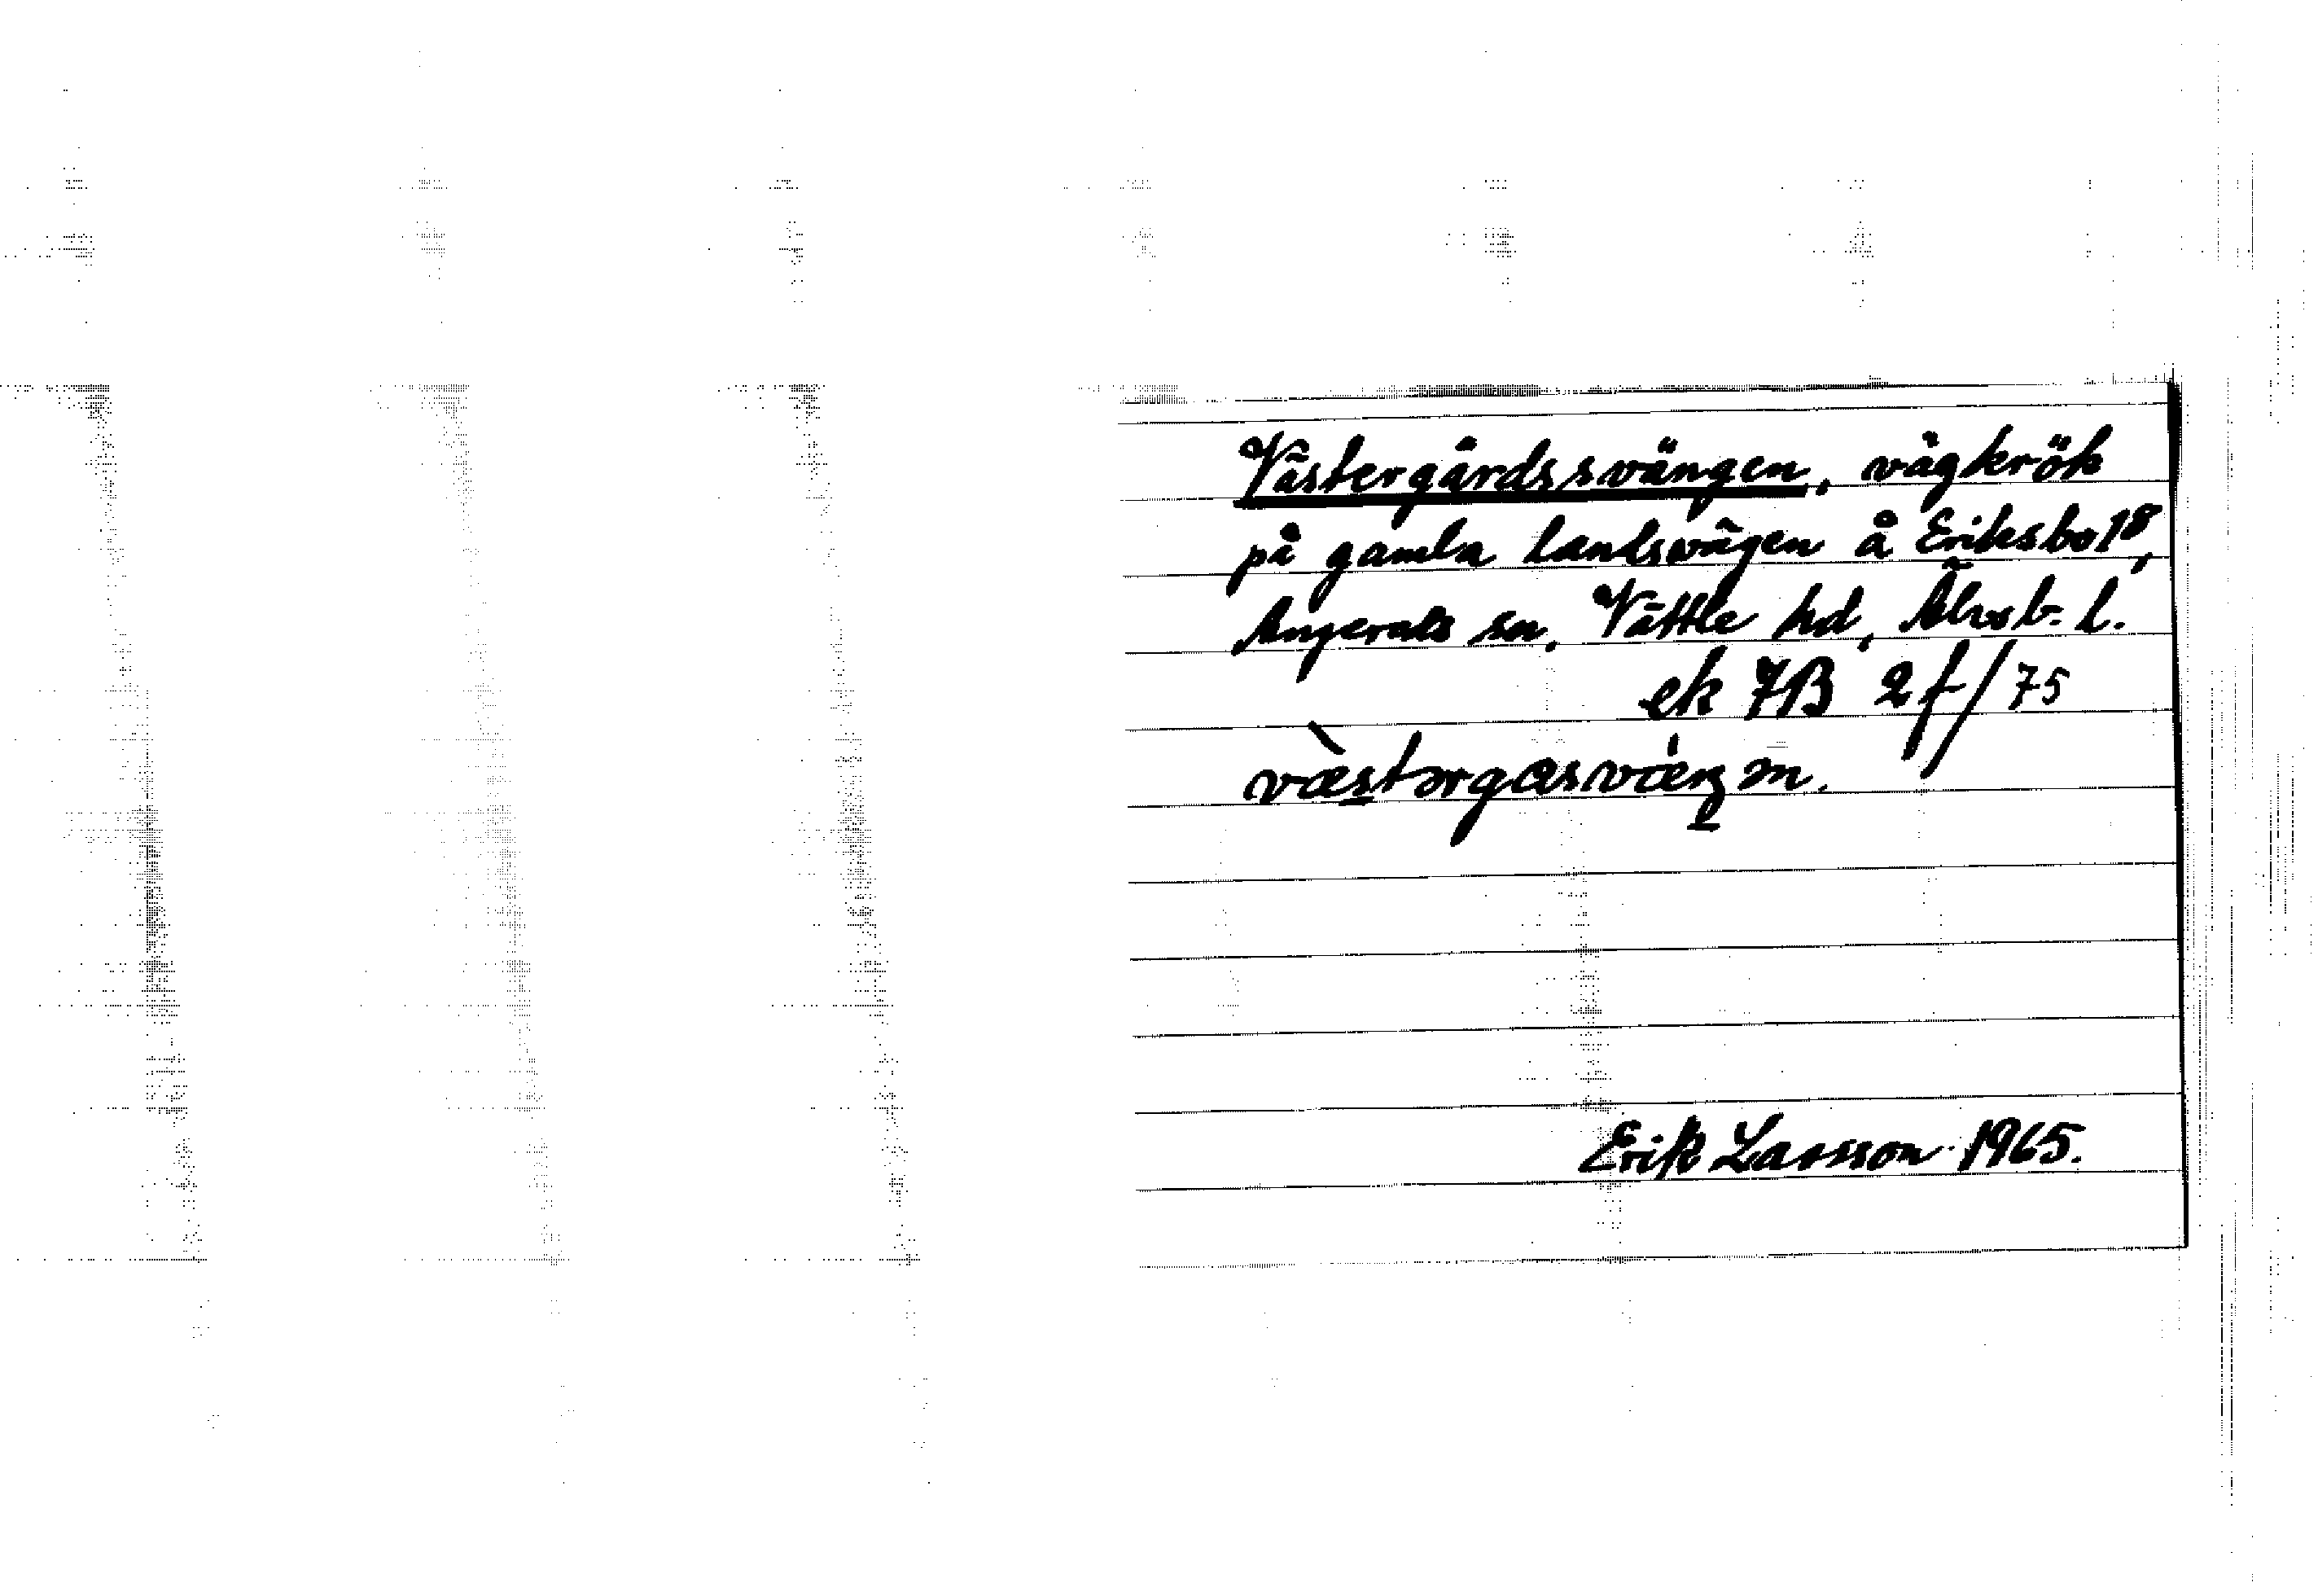 Västergårdssvängen, vägkrök
på gamla landsvägen å Eriksbo 18,
Angereds sn, Vättle hd, Älvsb. l.
ek 7B 2f/75
væ̀stərgasvæ̀ŋən.
Erik Larsson 1965.